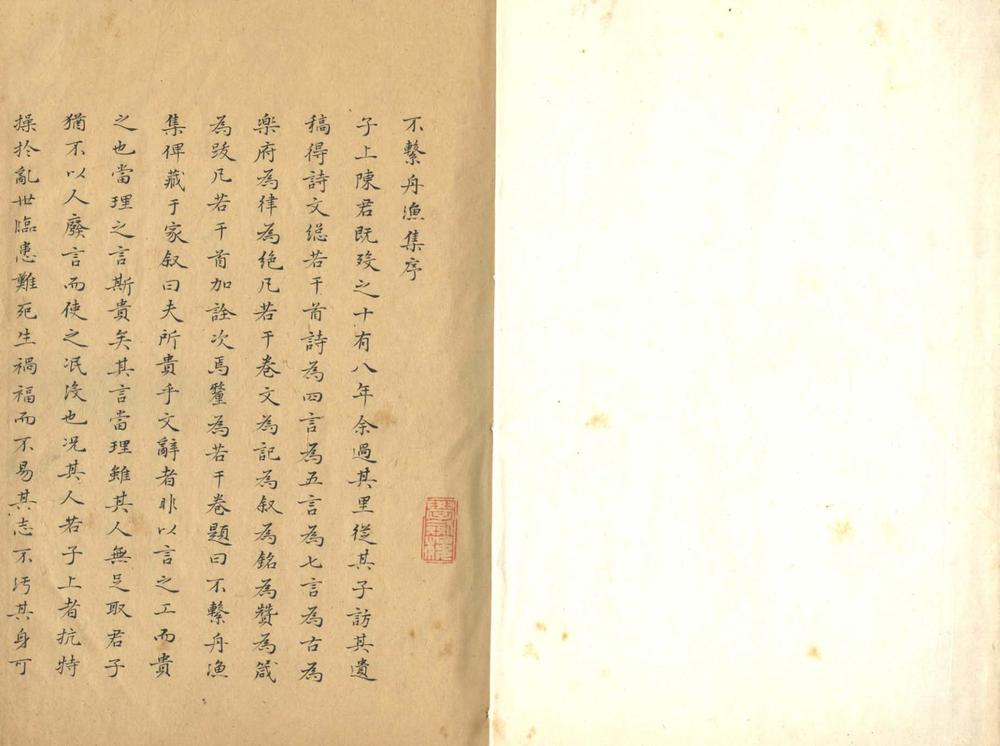 不繫舟漁集序
子上陳君既歿之十有八年余過其里從其子訪其遺
稿得詩文総若干首詩為四言為五言為七言為古為
樂府為律為絶凡若干卷文為記為叙為銘為贊為箴
為跋凡若干首加詮次焉釐為若干卷題曰不繫舟漁
集俾藏于家叙曰夫所貴乎文辭者非以言之工而貴
之也當理之言斯貴矣其言當理雖其人無足取君子
猶不以人廢言而使之泯沒也况其人若子上者抗特
操於亂世臨患難死生禍福而不易其志不汚其身可